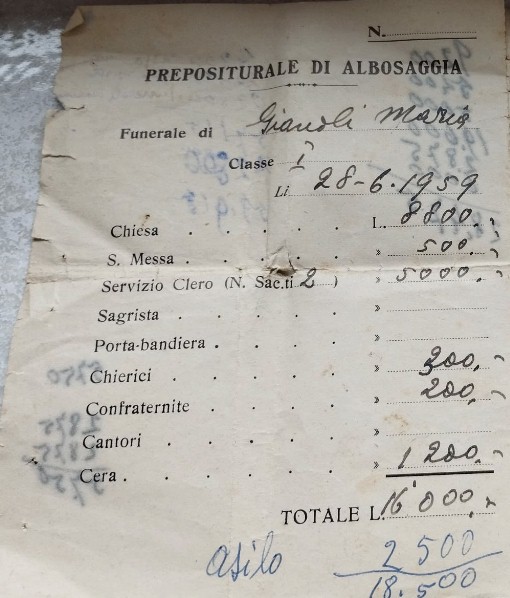 N.
PREPOSITURALE DI ALBOSAGGIA
Funerale di Gianoli Maria
Classe I
Li 28-6.1959
Chiesa . . . . . . L. 8800.-
S. Messa . . . . . » 500.-
Servizio Clero (N. Sac.ti 2 ) » 5000.-
Sagrista . . . . . »
Porta-bandiera . . . . »
Chierici . . . . . » 300.-
Confraternite . . . . » 200.-
Cantori . . . . . »
Cera . . . . . . » 1200.-
TOTALE L. 16'000.-
asilo 2500
18.500